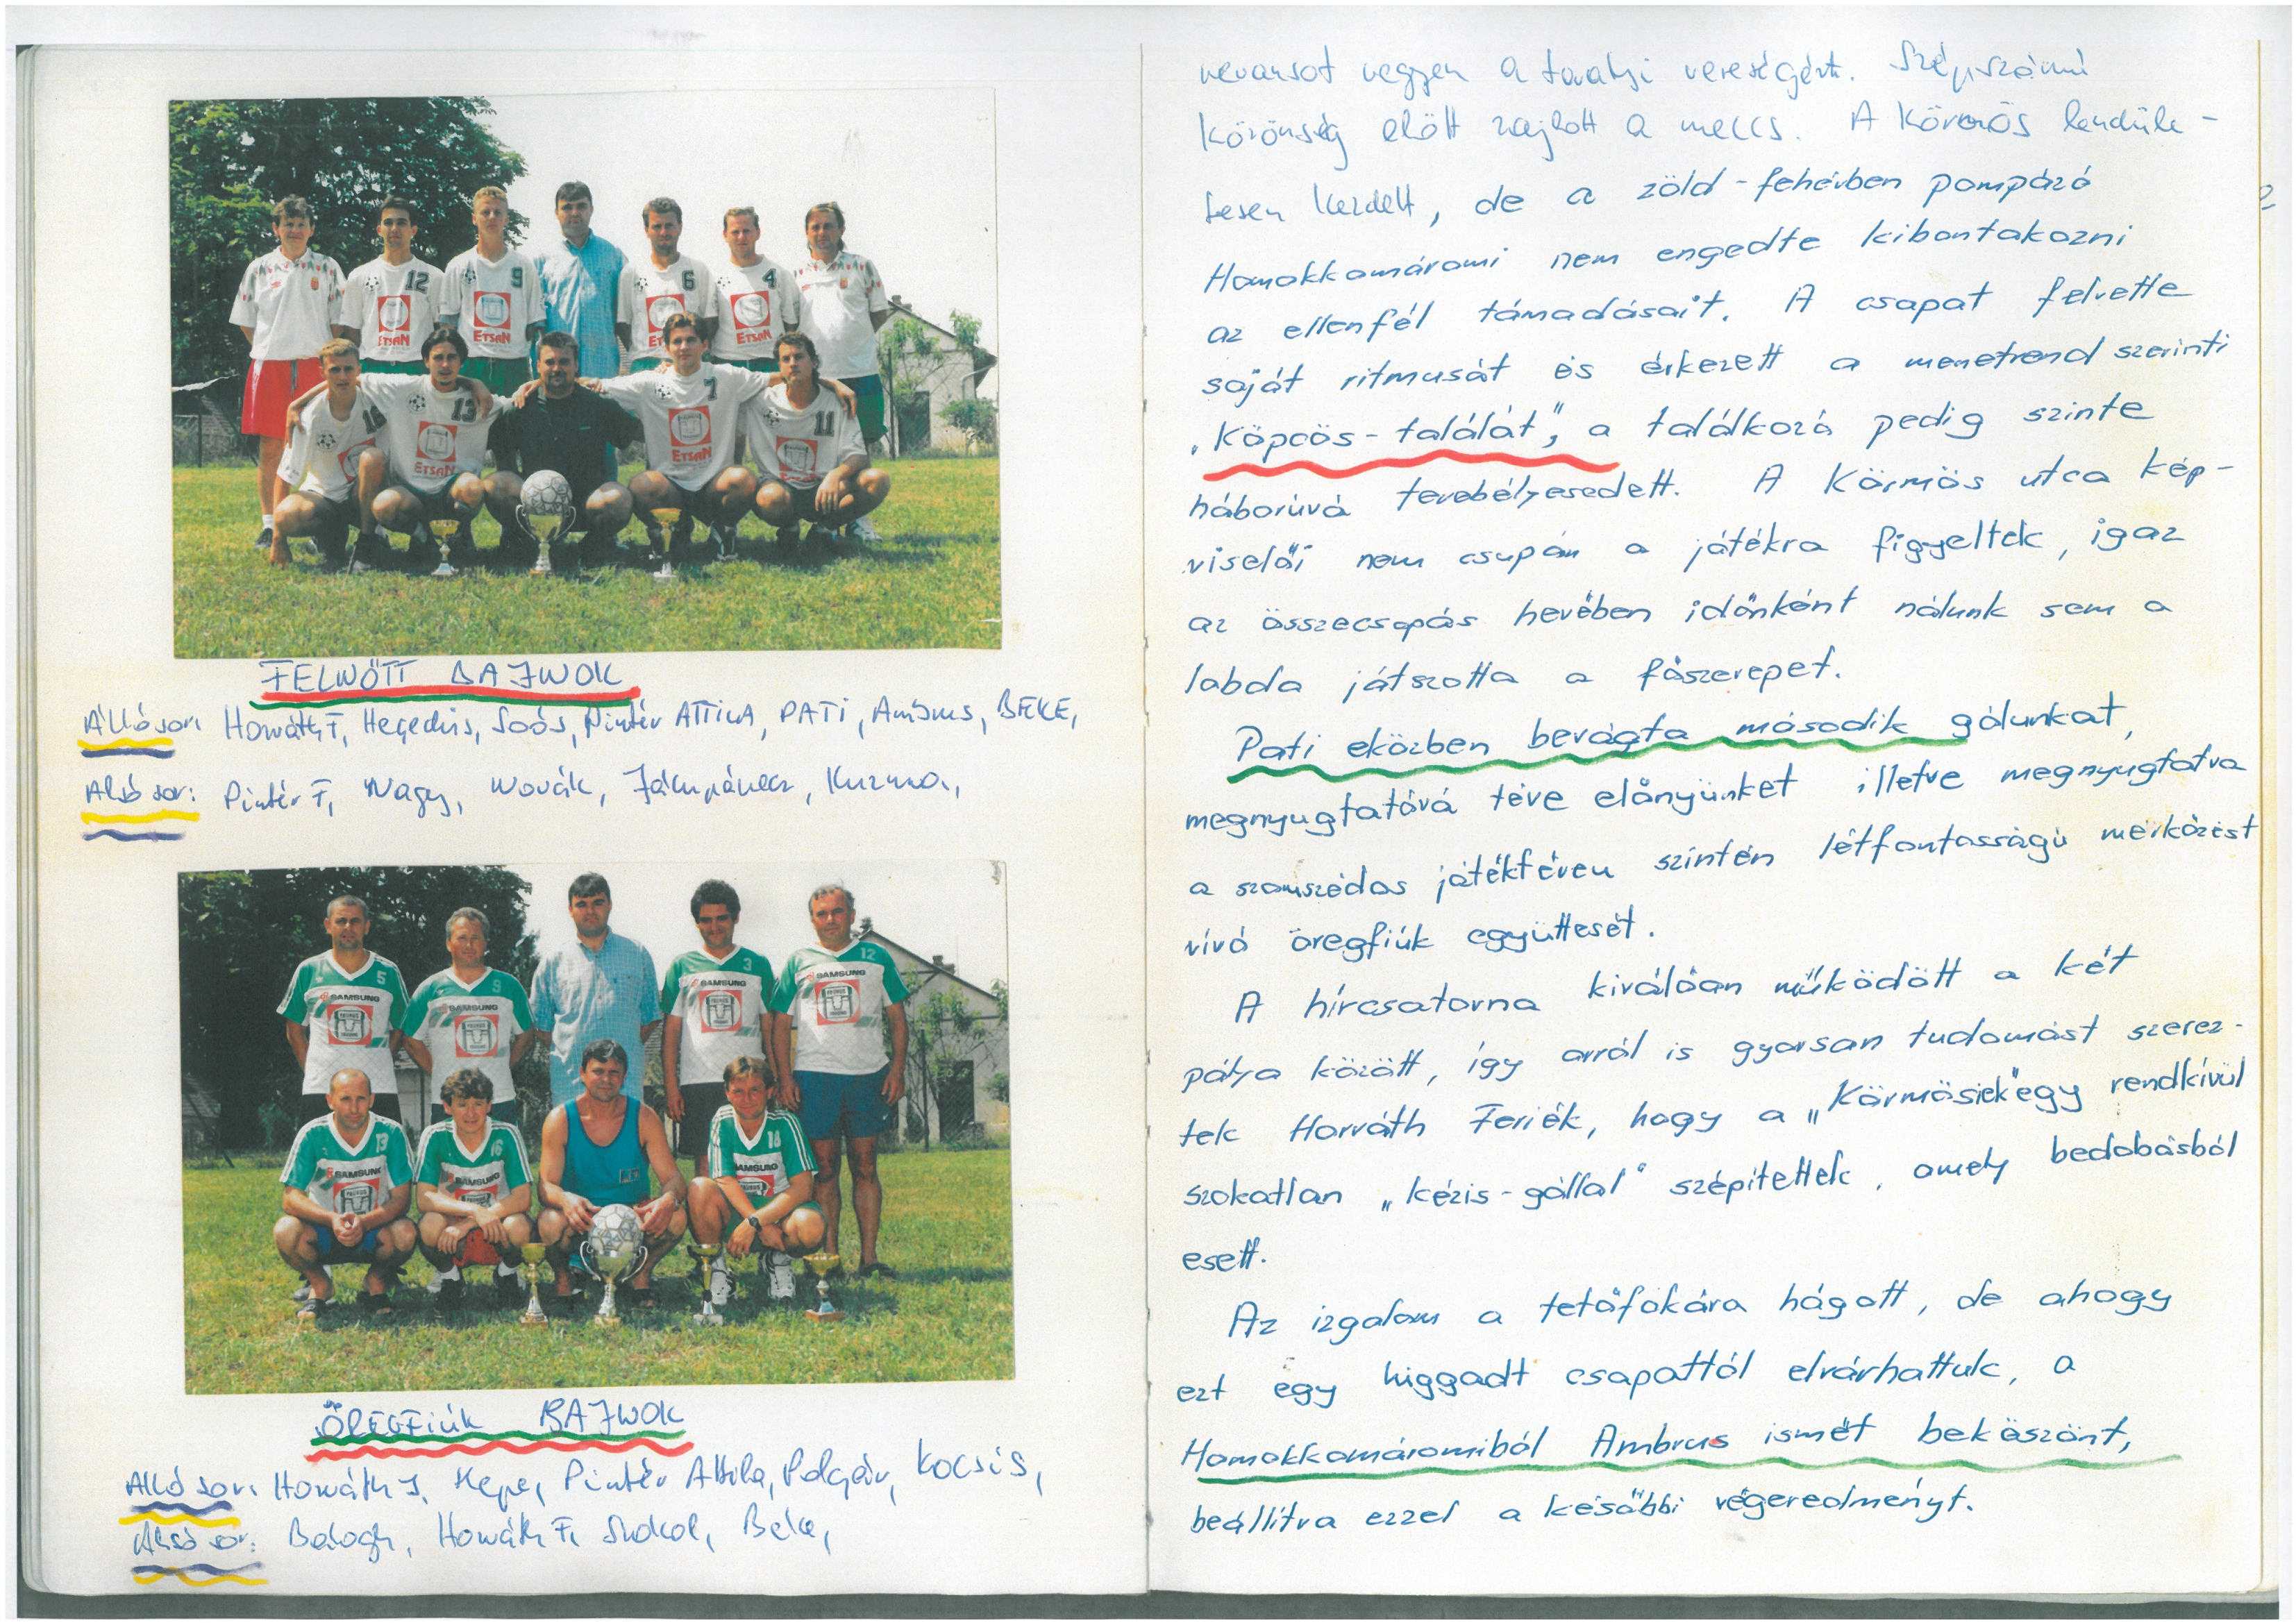 FELNŐTT BAJNOK
Álló sor: Horváth F, Hegedűs, Soós, Pintér ATTILA, PATI, Ambrus, BEKE,
Alsó sor: Pintér F, Nagy, Novák, Zámpánecz, Kuzma,
ÖREGFIÚK BAJNOK
Álló sor: Horváth J, Kepe, Pintér Attila, Polgár, Kocsis,
Alsó sor: Balogh, Horváth F, Sokol, Beke,
12
9
6
4
ETSAN
ETSAN
ETSAN
ETSAN
16
13
7
11
ETSAN
ETSAN
ETSAN
5
9
3
12
SAMSUNG
SAMSUNG
SAMSUNG
SAMSUNG
TAURUS
TAURUS
TAURUS
13
16
18
SAMSUNG
SAMSUNG
SAMSUNG
TAURUS
revansot vegyen a tavalyi vereségért. Szépszámú
közönség előtt zajlott a meccs. A Körmös lendüle-
tesen kezdett, de a zöld-fehérben pompázó
Homokkomáromi nem engedte kibontakozni
az ellenfél támadásait. A csapat felvette
saját ritmusát és érkezett a menetrend szerinti
„Köpcös-találat", a találkozó pedig szinte
háborúvá terebélyesedett. A Körmös utca kép-
viselői nem csupán a játékra figyeltek, igaz
az összecsapás hevében időnként nálunk sem a
labda játszotta a főszerepet.
Pati eközben bevágta második gólunkat,
megnyugtatóvá téve előnyünket illetve megnyugtatva
a szomszédos játéktéren szintén létfontosságú mérkőzést
vívó öregfiúk együttesét.
A hírcsatorna kiválóan működött a két
pálya között, így arról is gyorsan tudomást szerez-
tek Horváth Feriék, hogy a „Körmösiek" egy rendkívül
szokatlan „kézis-góllal" szépítettek, amely bedobásból
esett.
Az izgalom a tetőfokára hágott, de ahogy
ezt egy higgadt csapattól elvárhattuk, a
Homokkomáromiból Ambrus ismét beköszönt,
beállítva ezzel a későbbi végeredményt.